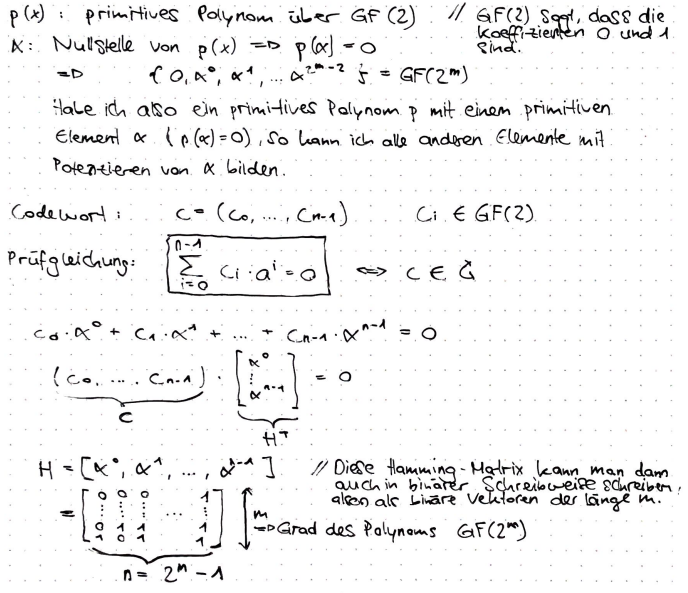 p(x) : primitives Polynom über GF(2) // GF(2) sagt, dass die
Koeffizienten 0 und 1
sind.
α: Nullstelle von p(x) => p(α) = 0
=> { 0, α⁰, α¹, ... α^(2^m-2) } = GF(2^m)
Habe ich also ein primitives Polynom p mit einem primitiven
Element α (p(α)=0), so kann ich alle anderen Elemente mit
Potenzieren von α bilden.
Codewort: c = (c₀, ..., cₙ₋₁) cᵢ ∈ GF(2)
Prüfgleichung: ∑_{i=0}^{n-1} cᵢ · a^i = 0 <=> c ∈ C
c₀ · α⁰ + c₁ · α¹ + ... + cₙ₋₁ · α^(n-1) = 0
(c₀, ... cₙ₋₁) · [α⁰ ⋮ α^(n-1)] = 0
c H^T
H = [α⁰, α¹, ..., α^(n-1)] // Diese Hamming-Matrix kann man dann
auch in binärer Schreibweise schreiben,
also als binäre Vektoren der länge m.
= [ 0 0 0 1
⋮ ⋮ ⋮ ... ⋮
0 1 1 1
1 0 1 1 ] m => Grad des Polynoms GF(2^m)
n = 2^m - 1